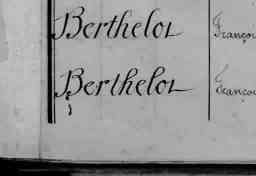 Berthelot Françoi
Berthelot Françoi